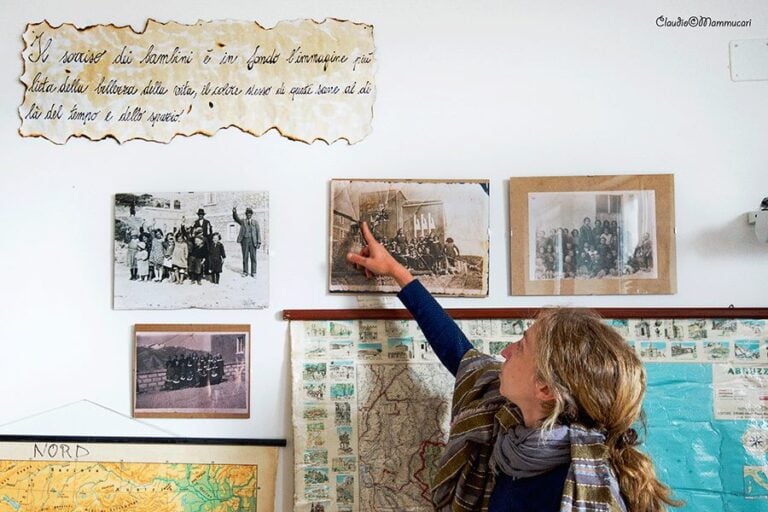 Claudio©Mammucari
Il sorriso dei bambini è in fondo l'immagine più
lieta della bellezza della vita, il colore stesso di queste sarne al di
là del tempo e dello spazio!
ABRUZZ
NORD